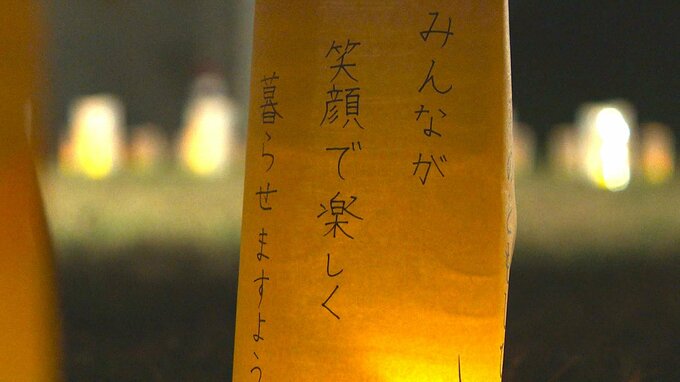 みんなが
笑顔で楽しく
暮らせますよう